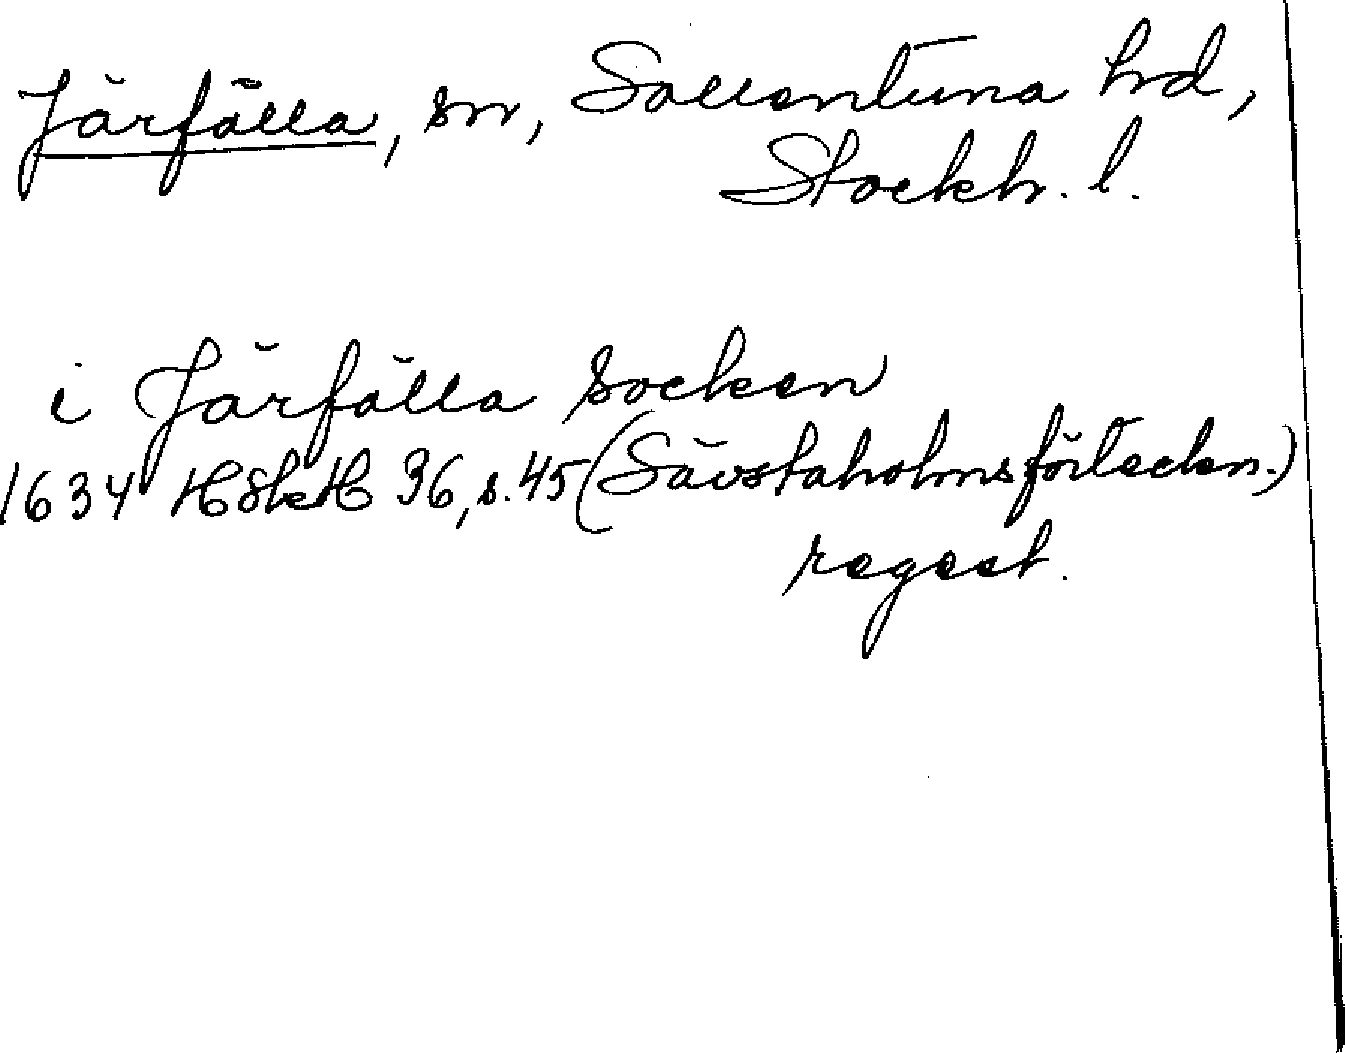 Järfälla, sn, Sollentuna hd,
Stockh. l.
i Järfälla socken
1634 HSkH 36, s. 45 (Sävstaholmsförteckn.)
regest.